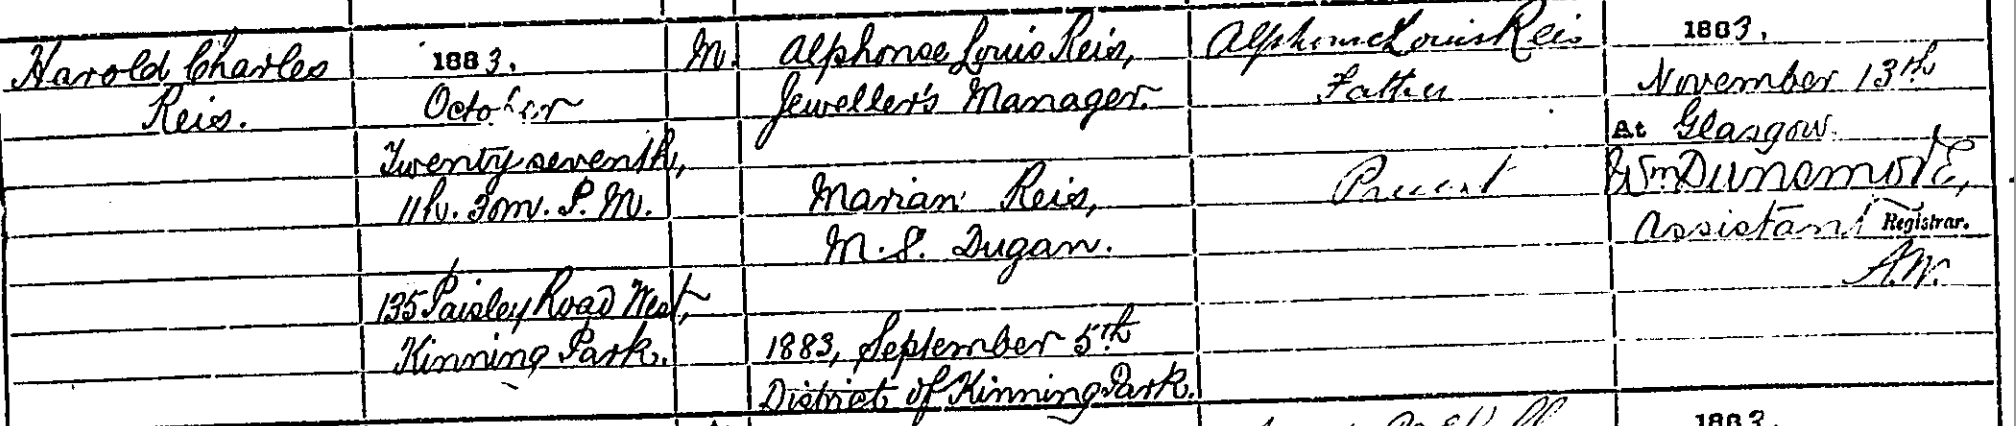 Harold Charles
Reis.
1883.
October
Twenty seventh,
11h. 30m. P.M.
135 Paisley Road West,
Kinning Park.
M.
Alphonse Louis Reis,
Jeweller's Manager.
Marian Reis,
M.S. Dugan.
1883, September 5th
District of Kinning Park.
Alphonse Louis Reis
Father
Present
1883.
November 13th
At Glasgow.
Wm Dunsmore,
Assistant Registrar.
A.W.
1883.